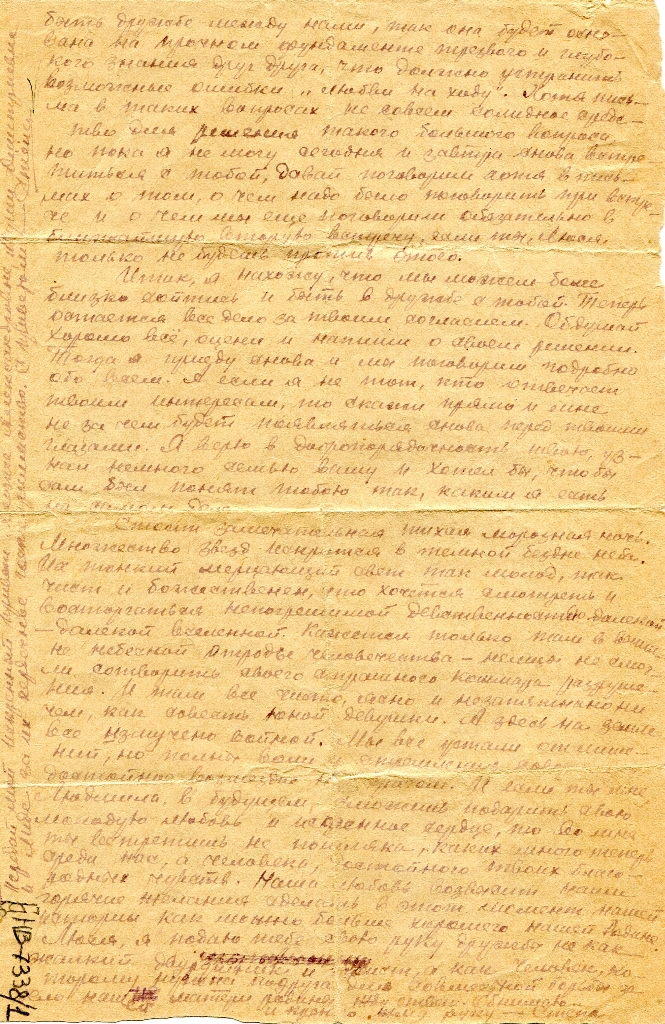 быть дружбе между нами, так она будет осно-
вана на прочном фундаменте трезвого и глубо-
кого знания друг друга, что должно устранить
возможные ошибки „любви на ходу". Хотя пись-
ма в таких вопросах не совсем солидное сред-
ство для решения такого большого вопроса
но пока я не могу сегодня и завтра снова встре
титься с тобой, давай поговорим хотя в пись-
мах о том, о чем надо было поговорить при встре-
че и о чем мы еще поговорим обязательно в
ближайшую вторую встречу, если ты, Люся,
только не будешь против этого.
Итак, я нахожу, что мы можем более
близко сойтись и быть в дружбе с тобой. Теперь
остается все дело за твоим согласием. Обдумай
хорошо всё, оцени и напиши о своем решении.
Тогда я приеду снова и мы поговорим подробно
обо всем. А если я не тот, кто отвечает
твоим интересам, то скажи прямо и мне
не за чем будет появляться снова перед твоими
глазами. Я верю в добропорядочность твою, уз-
нал немного семью вашу и хотел бы, чтобы
сам был понят тобою так, каким я есть
на самом деле.
Стоит замечательная тихая морозная ночь.
Множество звезд искрится в темной бездне неба.
Их тонкий мерцающий свет так молод, так
чист и божественен, что хочется смотреть и
восторгаться непогрешимой девственностью далекой
-далекой вселенной. Кажется только там в
не небесной отродье человечества - немцы не смог-
ли сотворить своего страшного кошмара разруше-
ния. И там все чисто, ясно и незапятнанно ни
чем, как совесть юной девушки. А здесь на земле
все измучено войной. Мы все устали от
ний, но полны воли и
достойно врагом. И если ты мне
Людмила, в будущем, сможешь подарить свою
молодую любовь и искреннее сердце, то во мне
ты встретишь не пошляка, каких много теперь
среди нас, а человека, достойного твоих благо-
родных чувств. Наша любовь
горячие желания сделать в этот момент нашей
истории как можно больше хорошего нашей Родине
Люся, я подаю тебе свою руку дружбы не как
жалкий и а как человек, ко-
торому нужна подруга для совместной борьбы за
дело нашей матери родины. Жду ответ.
и крепко жму руку — Степа
Передай мой искренний привет
и Миле за их сердечное гостеприимство. Я
НВ-7338/1